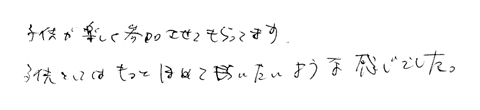 子供が楽しく参加させてもらってます.
子供としてはもっとほめて欲しいたいような感じでした。